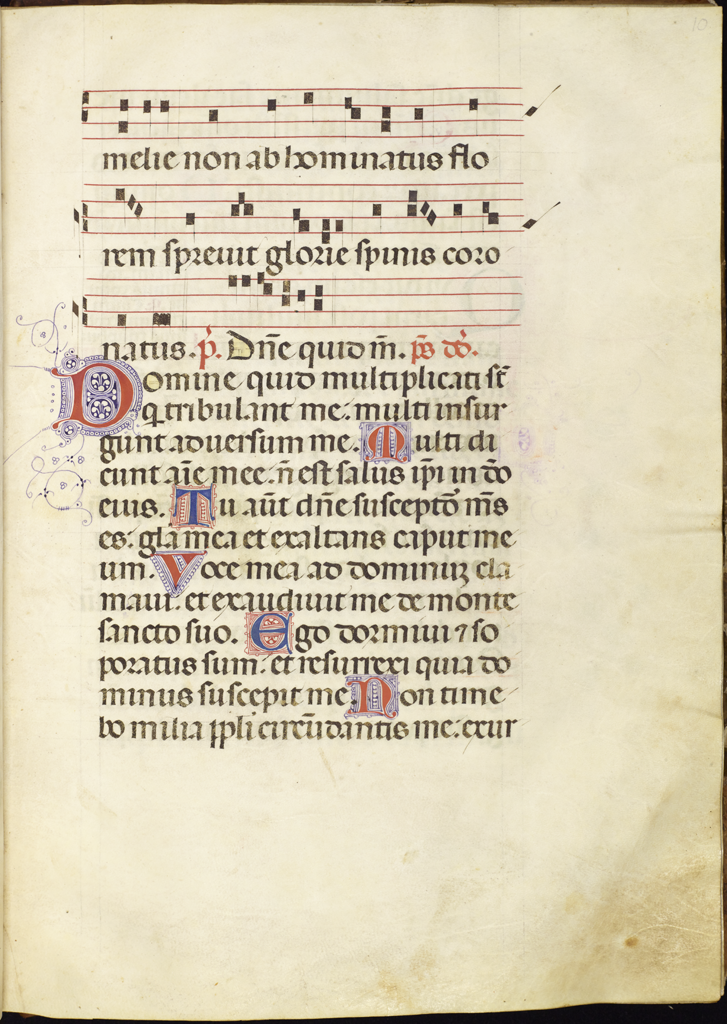 10
melie non abhominatus flo
rem sprevit glorie spinis coro
natus. p̄. Dn̄e quid m̄. ps̄ dd̄.
Domine quid multiplicati st̄
q tribulant me: multi insur
gunt adversum me. Multi di
cunt aīe mee: n̄ est salus ip̄i in dō
eius. Tu aūt dn̄e susceptō m̄s
es: glā mea et exaltans caput me
um. Voce mea ad dominuꝫ cla
mavi: et exaudivit me de monte
sancto suo. Ego dormivi ⁊ so
poratus sum: et resurrexi quia do
minus suscepit me. Non time
bo milia ppli circūdantis me: exur